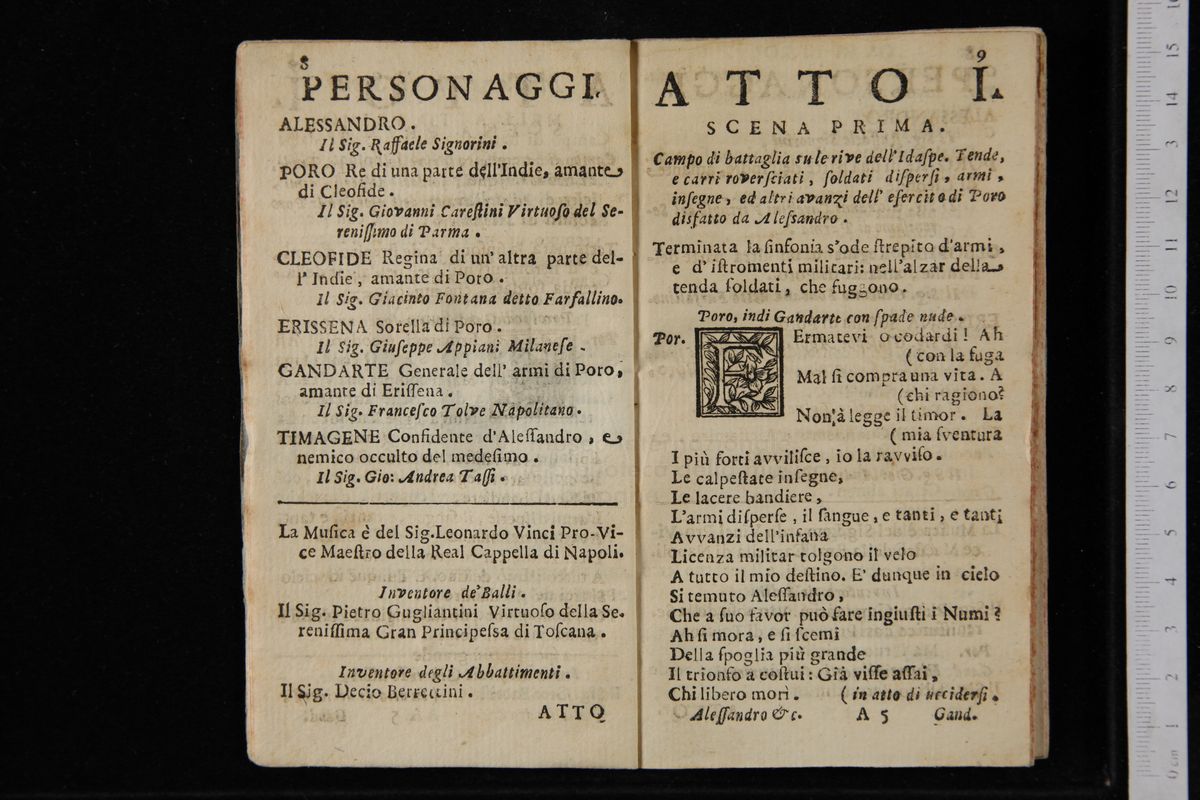 8
PERSONAGGI.
ALESSANDRO.
Il Sig. Raffaele Signorini.
PORO Re di una parte dell'Indie, amante
di Cleofide.
Il Sig. Giovanni Careſtini Virtuoſo del Se-
reniſſimo di Parma.
CLEOFIDE Regina di un' altra parte del-
l' Indie, amante di Poro.
Il Sig. Giacinto Fontana detto Farfallino.
ERISSENA Sorella di Poro.
Il Sig. Giuſeppe Appiani Milaneſe.
GANDARTE Generale dell' armi di Poro,
amante di Eriſſena.
Il Sig. Franceſco Tolve Napolitano.
TIMAGENE Confidente d'Aleſſandro, e
nemico occulto del medeſimo.
Il Sig. Gio: Andrea Taſſi.
La Muſica è del Sig. Leonardo Vinci Pro-Vi-
ce Maeſtro della Real Cappella di Napoli.
Inventore de' Balli.
Il Sig. Pietro Gugliantini Virtuoſo della Se-
reniſſima Gran Principeſsa di Toſcana.
Inventore degli Abbattimenti.
Il Sig. Decio Berrettini.
ATTO
9
ATTO I.
SCENA PRIMA.
Campo di battaglia su le rive dell'Idaſpe. Tende,
e carri roverſciati, ſoldati diſperſi, armi,
inſegne, ed altri avanzi dell' eſercito di Poro
disfatto da Aleſsandro.
Terminata la ſinfonia s'ode ſtrepito d'armi,
e d' iſtromenti militari: nell'alzar della
tenda ſoldati, che fuggono.
Poro, indi Gandarte con ſpade nude.
Por. FErmatevi o codardi! Ah
(con la fuga
Mal ſi compra una vita. A
(chi ragiono?
Non à legge il timor. La
(mia ſventura
I più forti avviliſce, io la ravviſo.
Le calpeſtate inſegne,
Le lacere bandiere,
L'armi diſperſe, il ſangue, e tanti, e tanti
Avvanzi dell'inſana
Licenza militar tolgono il velo
A tutto il mio deſtino. E' dunque in cielo
Si temuto Aleſſandro,
Che a ſuo favor può fare ingiuſti i Numi?
Ah ſi mora, e ſi ſcemi
Della ſpoglia più grande
Il trionfo a coſtui: Già viſſe aſſai,
Chi libero morì. (in atto di ucciderſi.
Aleſſandro &c. A 5 Gand.
0 cm 1 2 3 4 5 6 7 8 9 10 11 12 3 14 15 16